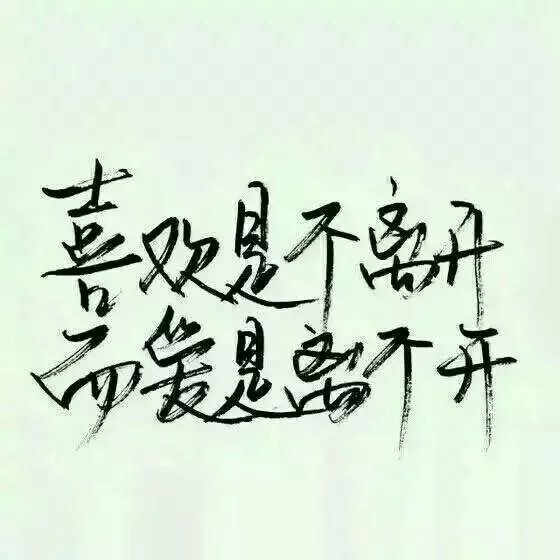 喜欢是不离开
而爱是离不开